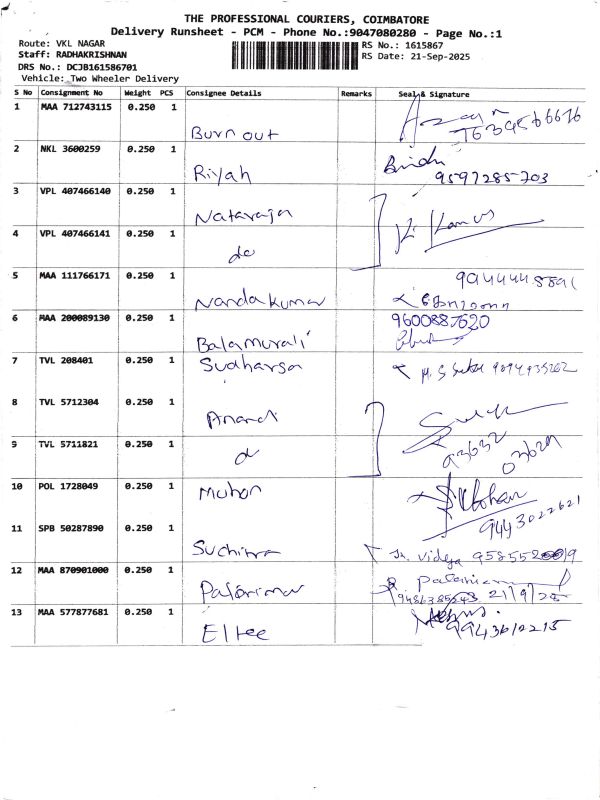 THE PROFESSIONAL COURIERS, COIMBATORE
Delivery Runsheet - PCM - Phone No.:9047080280 - Page No.:1
Route: VKL NAGAR
RS No.: 1615867
Staff: RADHAKRISHNAN
RS Date: 21-Sep-2025
DRS No.: DCJB161586701
Vehicle: Two Wheeler Delivery
S No Consignment No Weight PCS Consignee Details Remarks Seal & Signature
1 MAA 712743115 0.250 1
Burn out
2 NKL 3600259 0.250 1 Bindu
Riyah 9597285703
3 VPL 407466140 0.250 1
Nataraja
4 VPL 407466141 0.250 1
do
5 MAA 111766171 0.250 1
Nandakumar
6 MAA 200089130 0.250 1 9600887620
Balamurali
7 TVL 208401 0.250 1 Sudharsa
8 TVL 5712304 0.250 1
Anand
9 TVL 5711821 0.250 1 93632
d 03629
10 POL 1728049 0.250 1
Mohan 9443022621
11 SPB 50287890 0.250 1
Suchitra Vidya
12 MAA 870901000 0.250 1
21/9/25
13 MAA 577877681 0.250 1
Eltee 9943612215